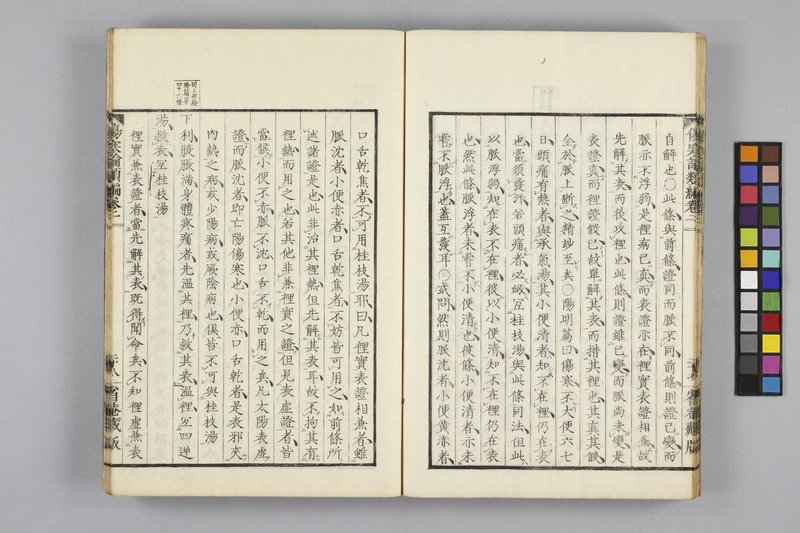 自解也○此條與前條證同而脈不同前條則證已變而
脈亦不浮弱是裡病已真而表證亦在裡實表證相兼故
先解其表而後攻裡也此條則證雖已變而脈尚未變是
表證真而裡證假已故單解其表而措其裡也其真其假
全於脈上斷之精妙至矣○陽明篇曰傷寒不大便六七
日頭痛有熱者與承氣湯其小便清者知不在裡仍在表
也當須發汗若頭痛者必衄宜桂枝湯與此條同法但此
以脈浮弱知在表不在裡彼以小便清知不在裡仍在表
也然此條脈浮者未嘗不小便清也彼條小便清者亦未
嘗不脈浮也蓋互發耳○或問然則脈沈者小便黃赤者
口舌乾焦者不可用桂枝湯耶曰凡裡實表證相兼者雖
脈沈者小便赤者口舌乾焦者不妨皆可用之如前條所
述諸證是也此非治其裡熱但先解其表耳故不拘其有
裡熱而用之也若其他非兼裡實之證但見表虛證者皆
當候小便不赤脈不沈口舌不乾而用之矣凡太陽表虛
證而脈沈者即亡陽傷寒也小便赤口舌乾者是表邪夾
內熱之病或少陽病或厥陰病也俱皆不可與桂枝湯
下利腹脹滿身體疼痛者先溫其裡乃救其表溫裡宜四逆
湯救表宜桂枝湯
裡實兼表證者當先解其表既得聞命矣不知裡虛兼表
傷寒論類編卷二
省菴藏版